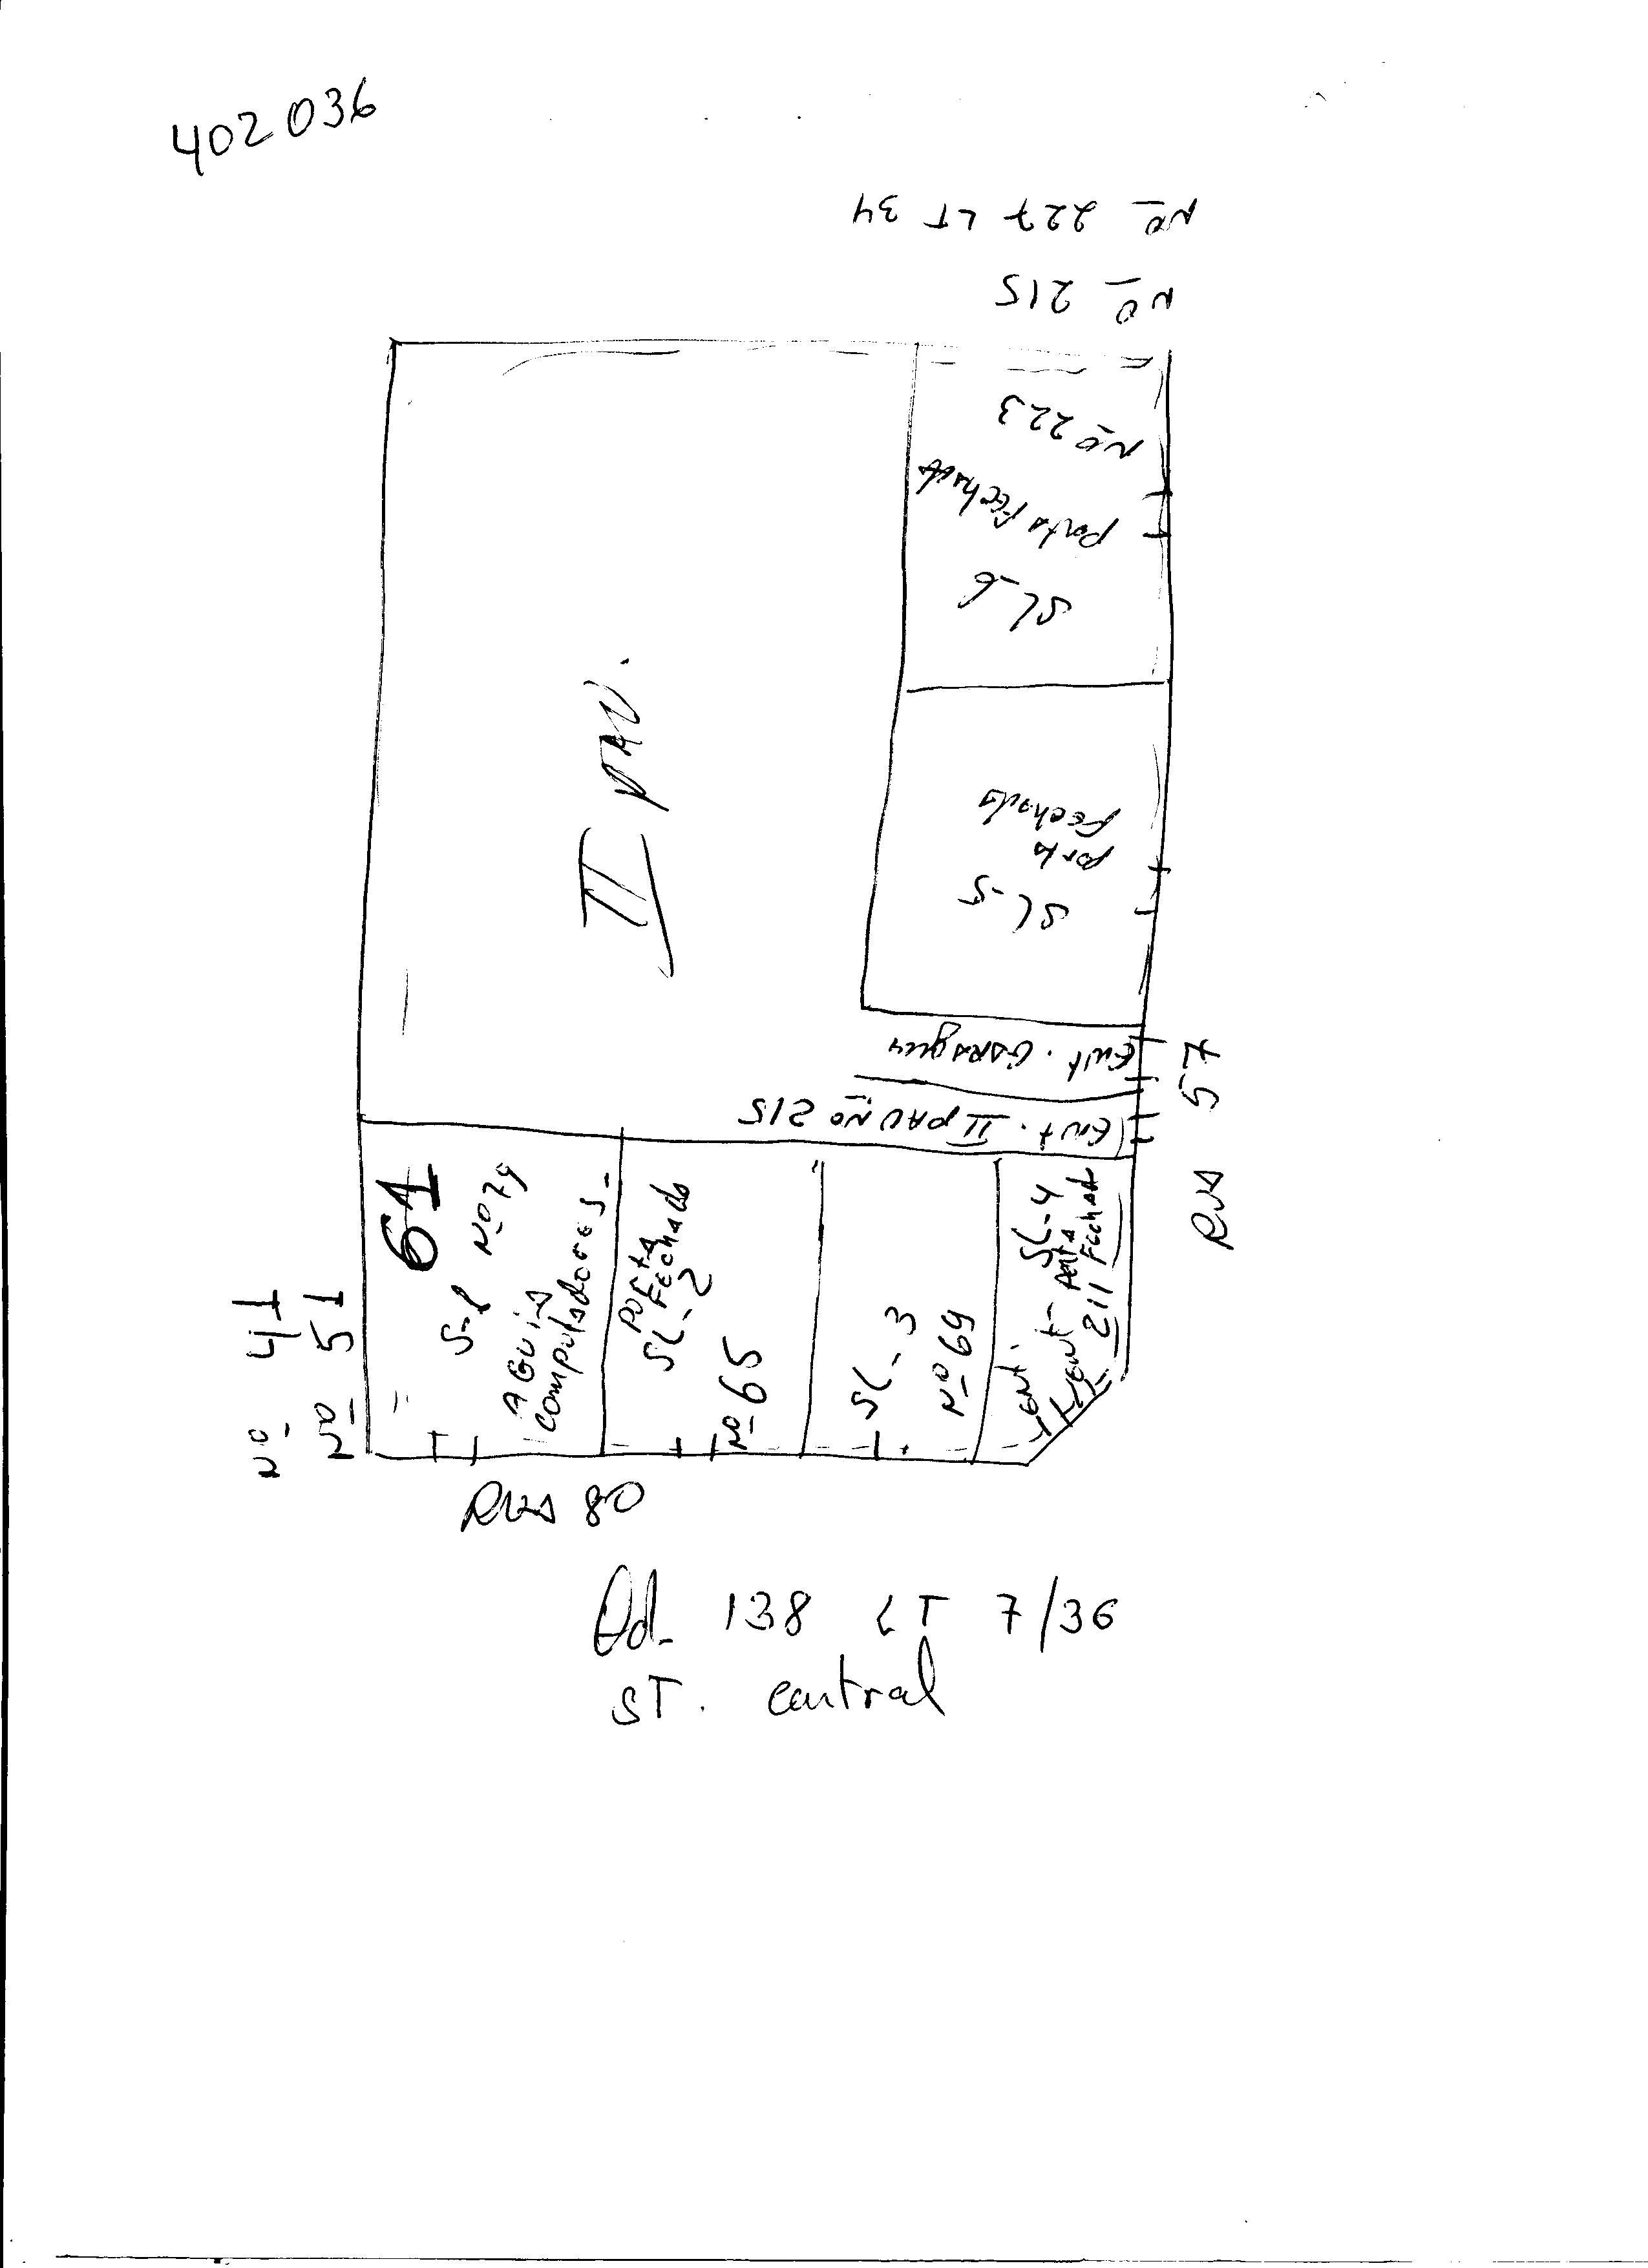 402036
Nº 227 LT 34
Nº 215
Nº 223
Porta Fechada
SL-6
II PAV.
SL-5
Porta
Fechada
Ent. Garagem
Ent. II PAV Nº 215
RUA 57
Nº 41
Nº 51
61
S-1 Nº 79
AGUIA
Computadores
Porta
Fechado
SL-2
Nº 65
SL-3
Nº 69
SL-4
Porta
Fechado
211
Ent.
Ent.
RUA 80
Qd. 138 LT 7/36
ST. central